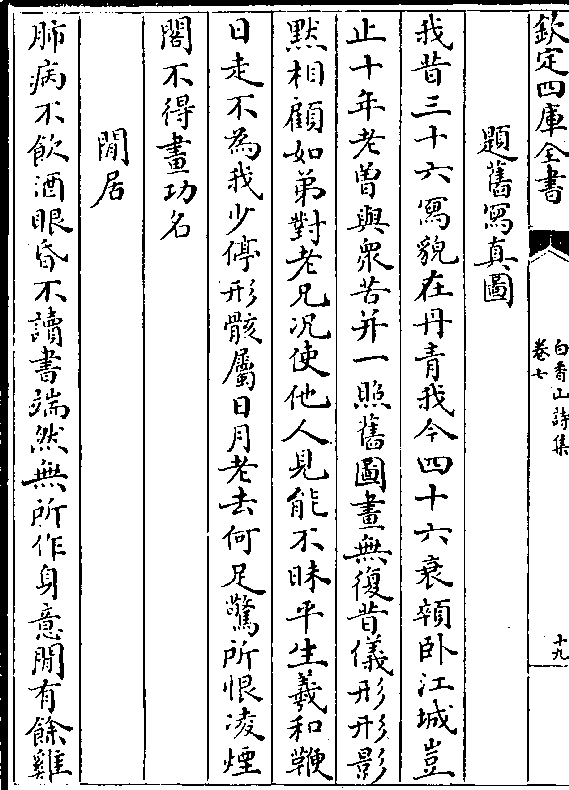 欽定四庫全書
白香山詩集
卷七
十九
題舊寫真圖
我昔三十六寫貌在丹青我今四十六衰顇卧江城豈
止十年老曽與衆苦并一照舊圖畫無復昔儀形形影
黙相顧如弟對老兄况使他人見能不昧平生羲和鞭
日走不為我少停形骸屬日月老去何足驚所恨凌煙
閣不得畫功名
閒居
肺病不飲酒眼昏不讀書端然無所作身意閒有餘雞